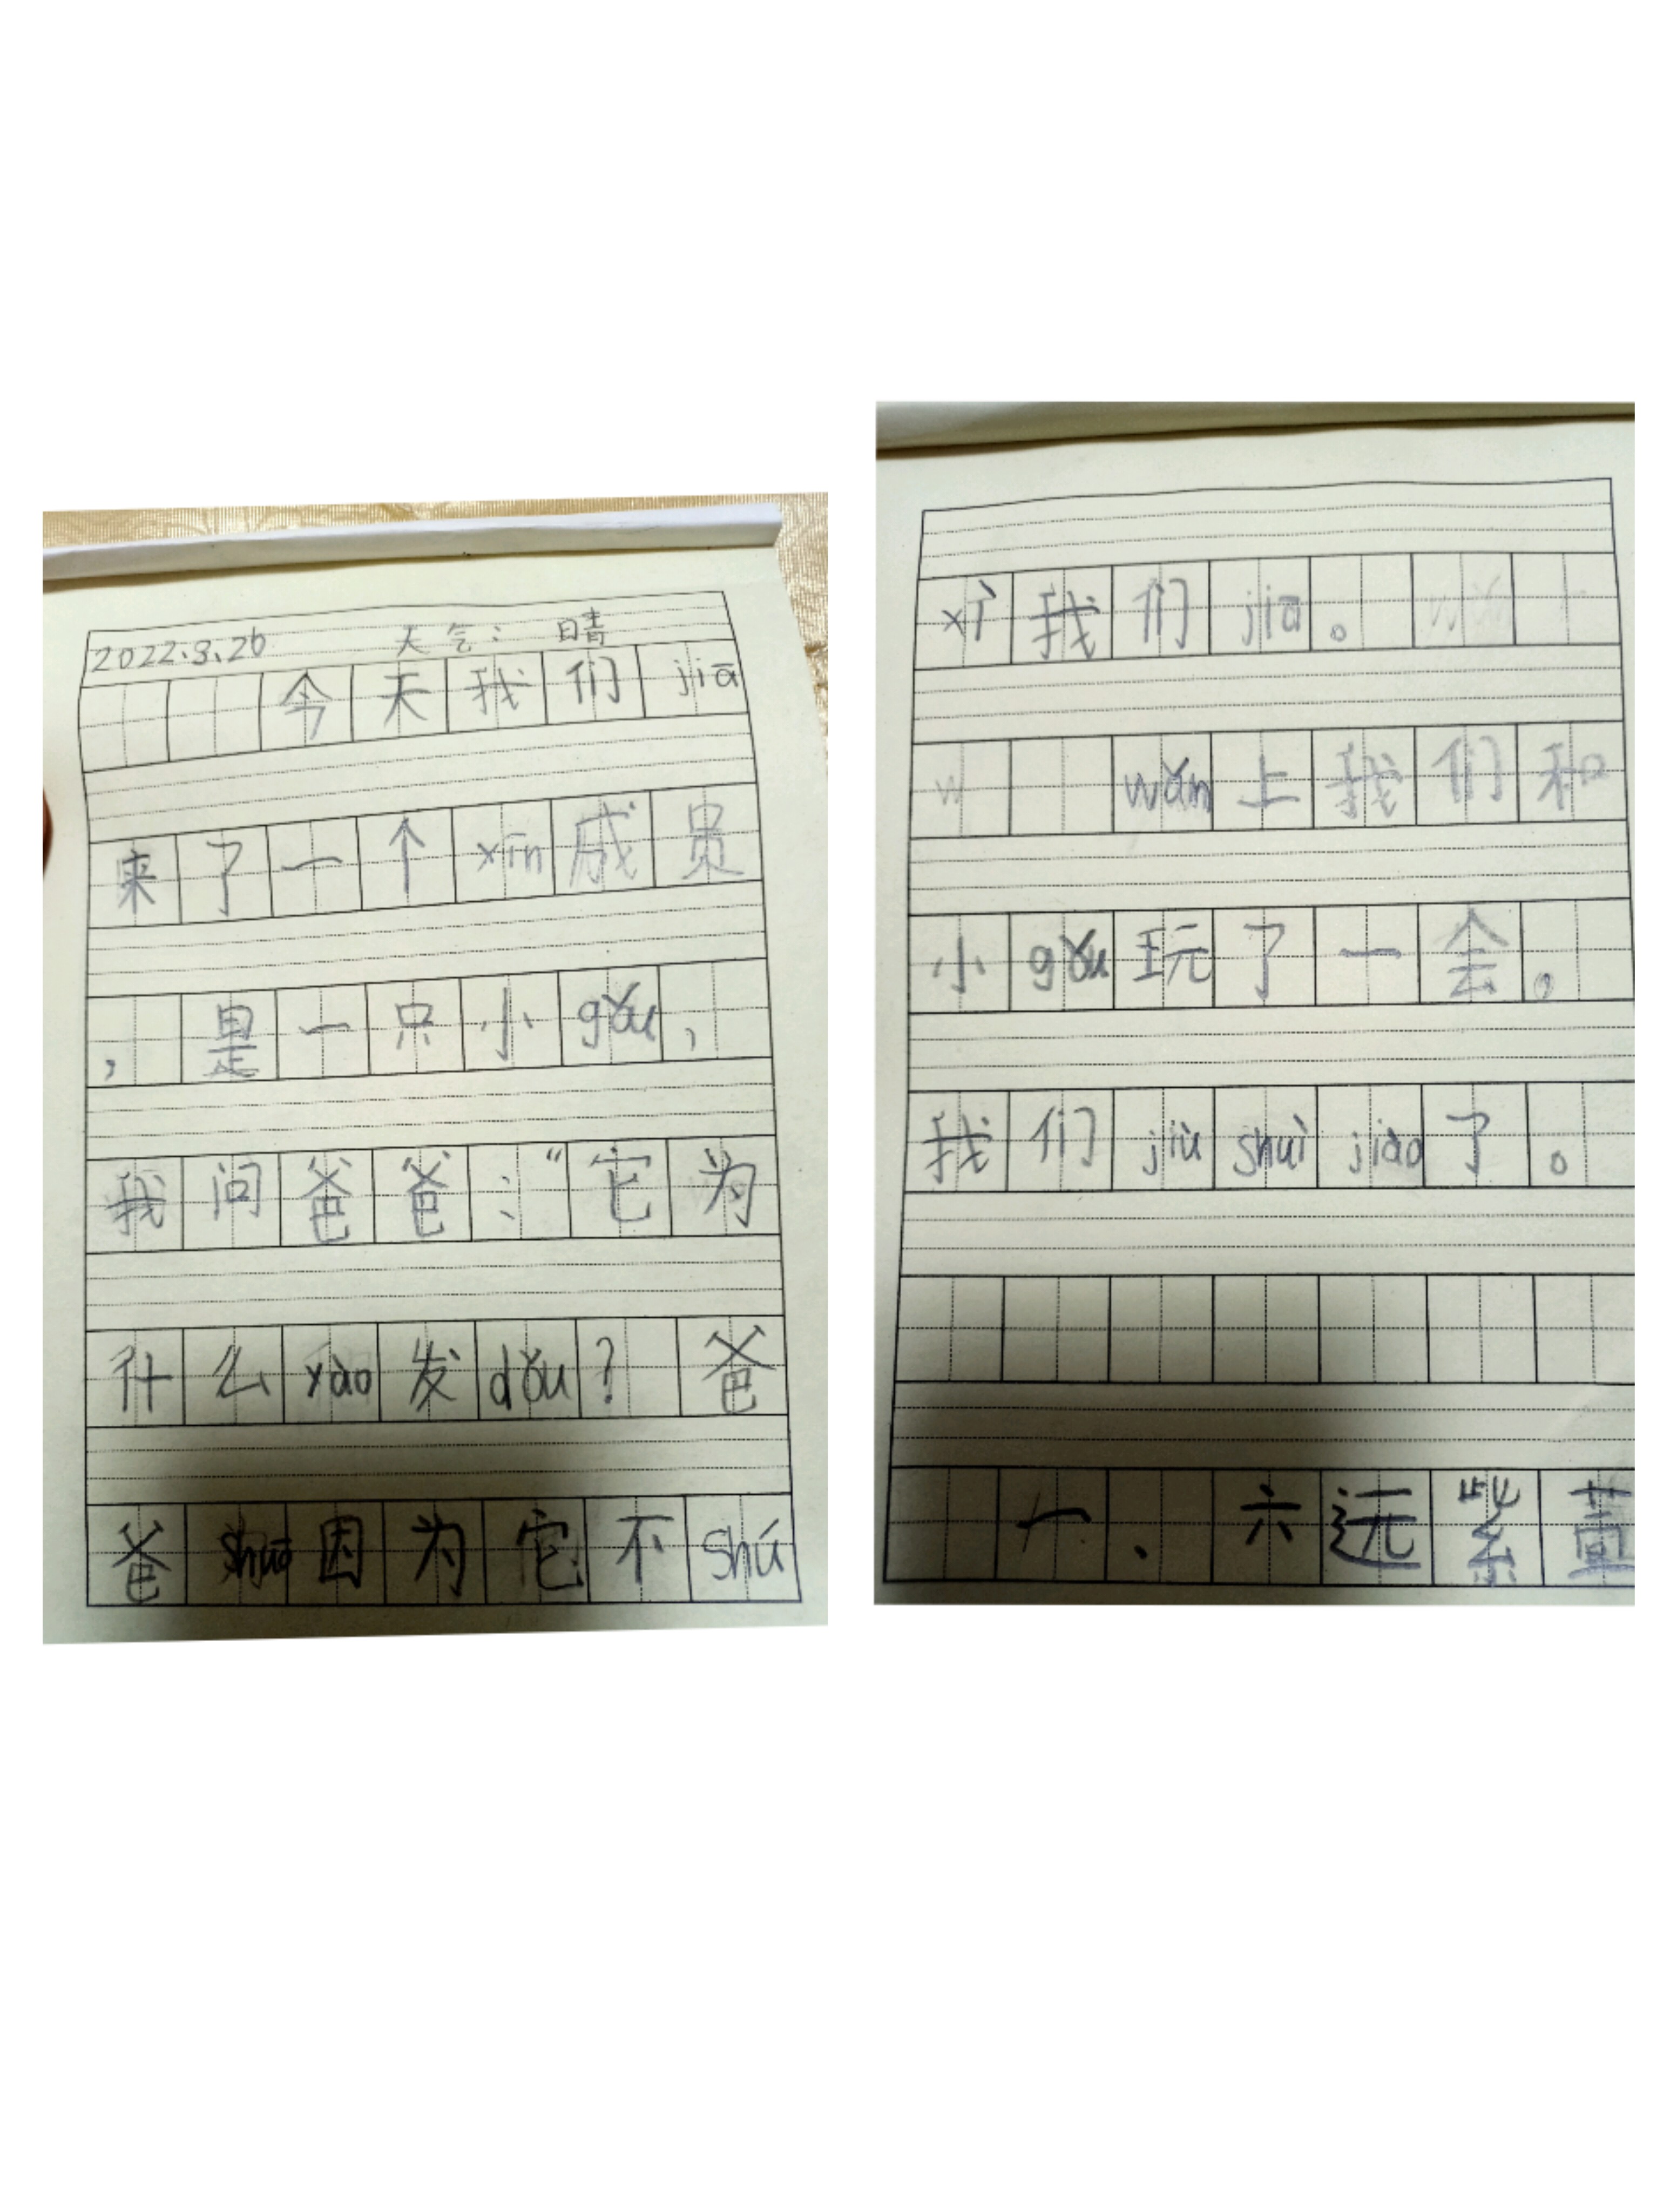 2022.3.26 天气：晴
今天我们jiā
来了一个xīn成员
，是一只小gǒu，
我问爸爸：“它为
什么yào发dǒu？爸
爸shuō因为它不shú
xī我们jiā。
wǎn上我们和
小gǒu玩了一会。
我们jiù shuì jiào了。
一、六远紫萱